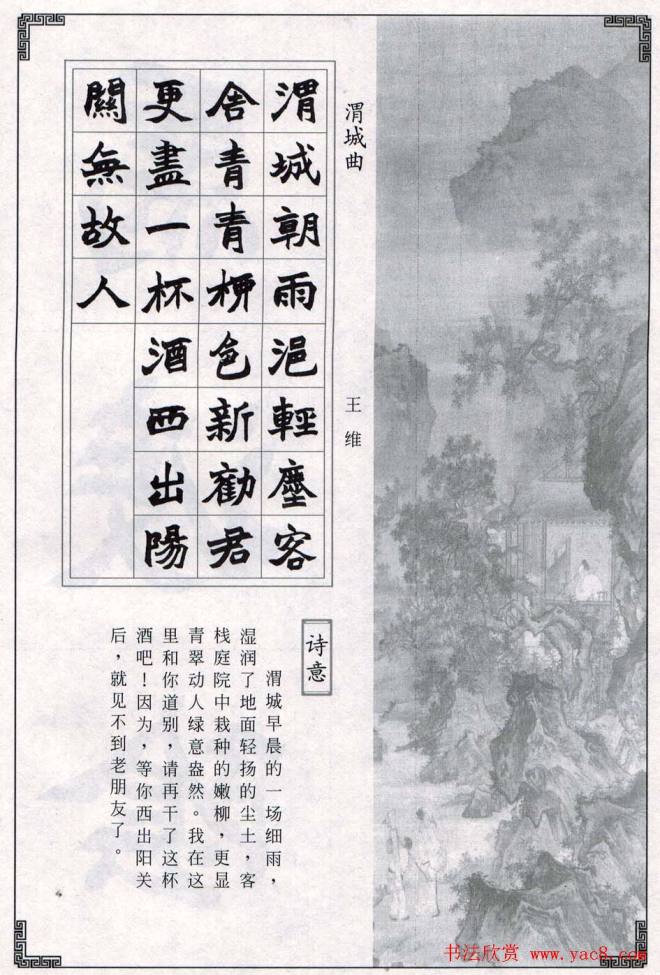 渭城曲
王维
渭城朝雨浥輕塵客
舍青青柳色新勸君
更盡一杯酒西出陽
關無故人
诗意
渭城早晨的一场细雨，
湿润了地面轻扬的尘土，客
栈庭院中栽种的嫩柳，更显
青翠动人绿意盎然。我在这
里和你道别，请再干了这杯
酒吧！因为，等你西出阳关
后，就见不到老朋友了。
书法欣赏 www.yac8.com